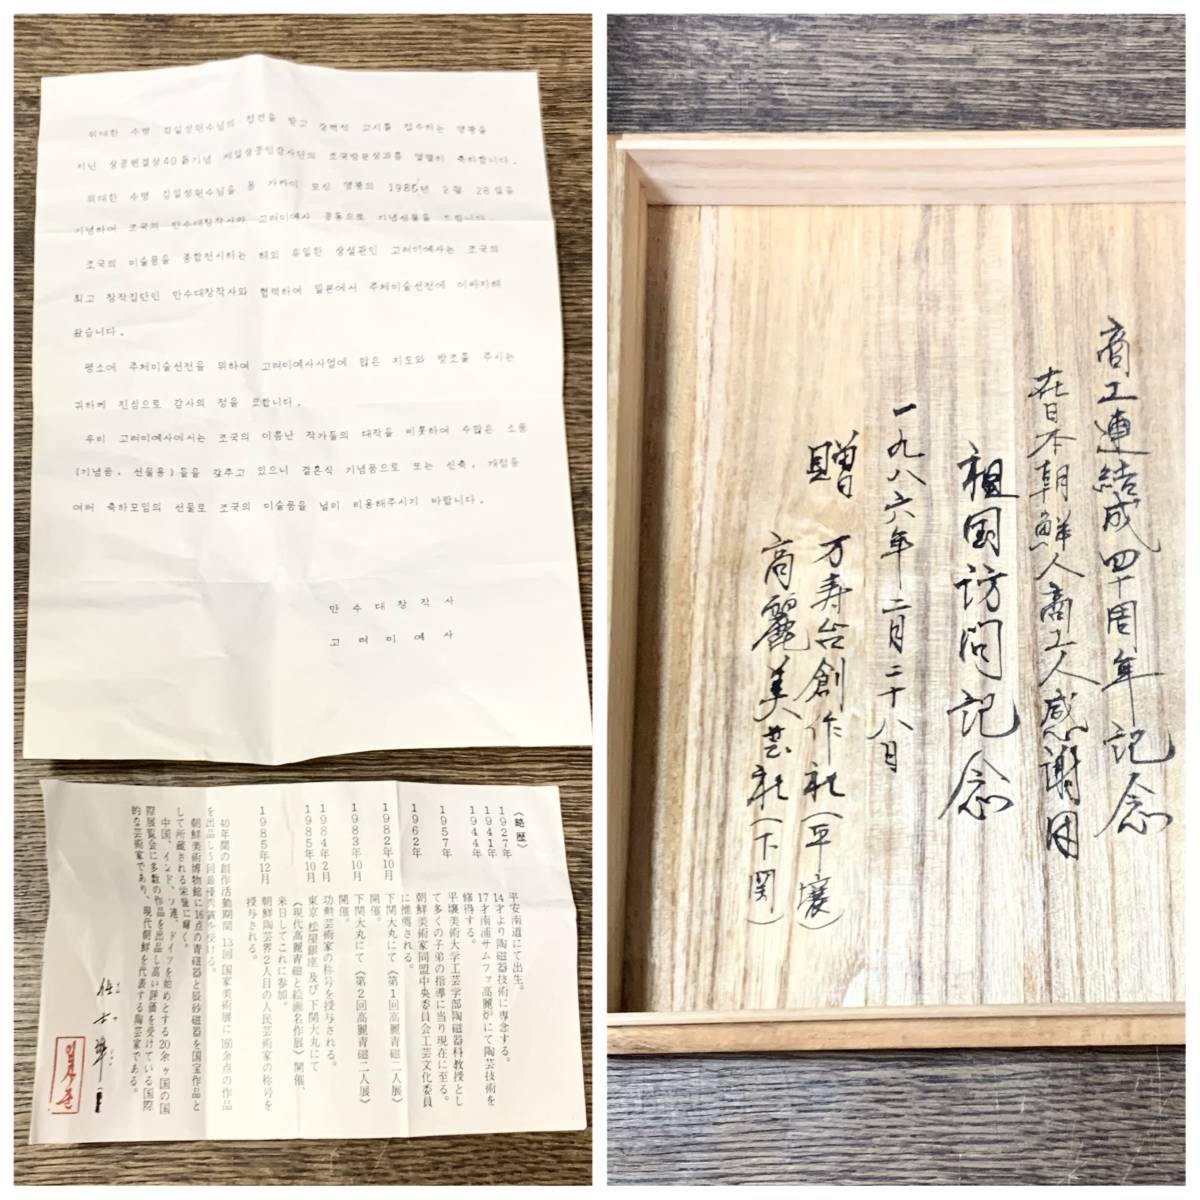 위대한 수령 김일성원수님의 접견을 받고 강령적 교시를 접수하는 영광을
지닌 상공련결성40돐기념 재일상공인감사단의 조국방문성과를 열렬히 축하합니다.
위대한 수령 김일성원수님을 몸 가까이 모신 영광의 1986년 2월 28일을
기념하여 조국의 만수대창작사와 고려미예사 공동으로 기념선물을 드립니다.
조국의 미술품을 종합전시하는 해외 유일한 상설관인 고려미예사는 조국의
최고 창작집단인 만수대창작사와 협력하여 일본에서 주체미술선전에 이바지해
왔습니다.
평소에 주체미술선전을 위하여 고려미예사사업에 많은 지도와 방조를 주시는
귀하께 진심으로 감사의 정을 표합니다.
우리 고려미예사에서는 조국의 이름난 작가들의 대작을 비롯하여 수많은 소품
(기념품, 선물용)들을 갖추고 있으니 결혼식 기념품으로 또는 신축, 개점등
여러 축하모임의 선물로 조국의 미술품을 널리 리용해주시기 바랍니다.
만수대창작사
고려미예사
《略歴》
1927年 平安南道にて出生。
1941年 14才より陶磁器技術に専念する。
1944年 17才南浦サムファ高麗炉にて陶芸技術を
修得する。
1957年 平壌美術大学工芸学部陶磁器科教授とし
て多くの子弟の指導に当り現在に至る。
1962年 朝鮮美術家同盟中央委員会工芸文化委員
に推薦される。
1982年10月 下関大丸にて《第1回高麗青磁二人展》
開催。
1983年10月 下関大丸にて《第2回高麗青磁二人展》
開催。
1984年2月 功勲芸術家の称号を授与される。
1985年10月 東京 松屋銀座 及び 下関大丸にて
《現代高麗青磁と絵画名作展》開催、
来日してこれに参加。
1985年12月 朝鮮陶芸界2人目の人民芸術家の称号を
授与される。
40年間の創作活動期間 13回 国家美術展に160余点の作品
を出品し5回最優秀賞を受ける。
朝鮮美術博物館に16点の青磁器と辰砂磁器を国宝作品と
して所蔵される栄誉に輝く。
中国、インド、ソ連、ドイツを始めとする20余ヶ国の国
際展覧会に多数の作品を出品し高い評価を受けている国際
的な芸術家であり、現代朝鮮を代表する陶芸家である。
任士準
임사준
商工連結成四十周年記念
在日本朝鮮人商工人感謝団
祖国訪問記念
一九八六年二月二十八日
贈 万寿台創作社(平壌)
高麗美芸社(下関)